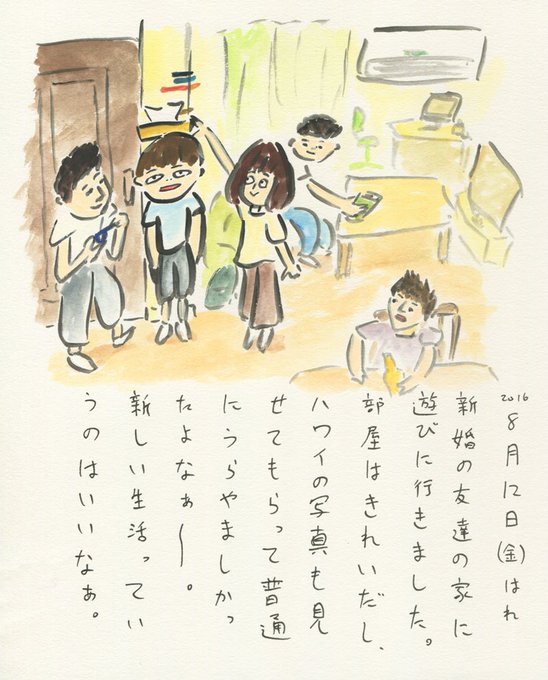 2016
8月12日(金)はれ
新婚の友達の家に
遊びに行きました。
部屋はきれいだし、
ハワイの写真も見
せてもらって普通
にうらやましかっ
たよなぁ〜。
新しい生活ってい
うのはいいなぁ。